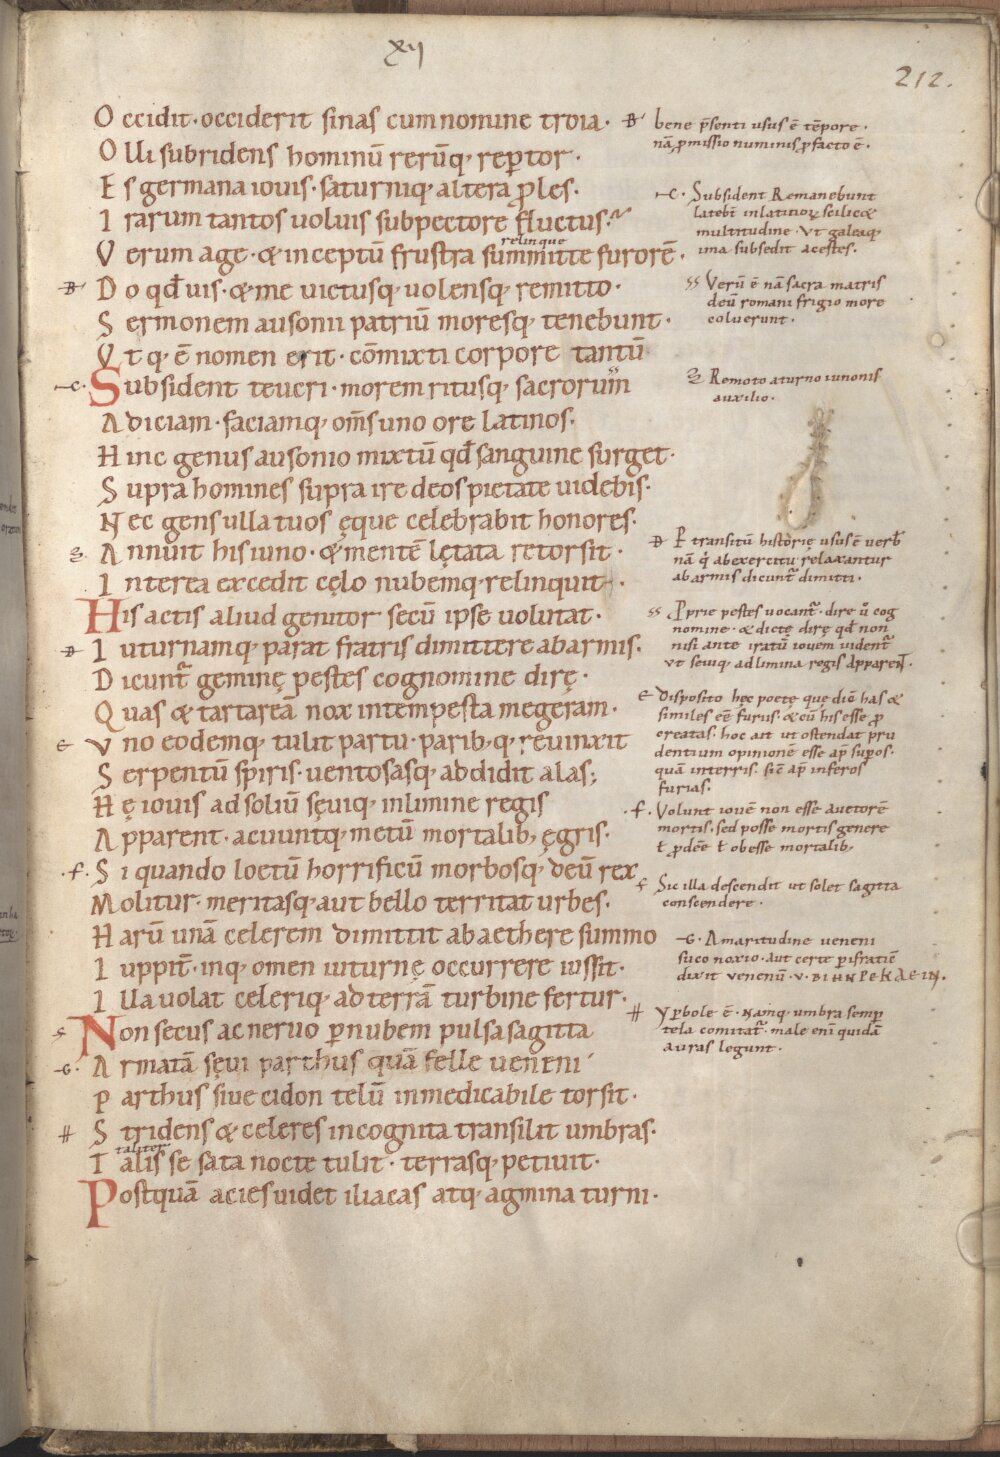 xıı
212.
Occidit · occiderit sinas cum nomine troia ·
Olli subridens hominū rerūq; reptor ·
Es germana iouis · saturniq; altera ꝓles ·
Irarum tantos uoluis subpectore fluctus ·
relinque
Verum age · & inceptū frustra summitte furorē ·
Do qđ uis · & me uictusq; uolensq; remitto ·
Sermonem ausonii patriū moresq; tenebunt ·
Vtq; ē nomen erit · cōmixti corpore tantū
Subsident teucri · morem ritusq; sacrorum
Adiciam · faciamq; om̄s uno ore latinos ·
Hinc genus ausonio mixtū qđ sanguine surget ·
Supra homines supra ire deos pietate uidebis ·
Nec gens ulla tuos ęque celebrabit honores ·
Annuit his iuno · & mentē lętata retorsit ·
Interea excedit cęlo nubemq; relinquit ·
His actis aliud genitor secū ipse uolutat ·
Iuturnamq; parat fratris dimittere ab armis ·
Dicunt̄ geminę pestes cognomine dirę ·
Quas & tartareā nox intempesta megeram ·
Vno eodemq; tulit partu · parib; q; reuinxit
Serpentū spiris · uentosasq; addidit alas;
Hę iouis ad soliū sęuiq; in limine regis
Apparent · acuuntq; metū mortalib; ęgris ·
Si quando loetū horrificū morbosq; deū rex
Molitur · meritasq; aut bello territat urbes ·
Harū unā celerem dimittit ab aethere summo
Iuppit̄ · inq; omen iuturnę occurrere iussit ·
Illa uolat celeriq; ad terrā turbine fertur ·
Non secus ac neruo ꝑ nubem pulsa sagitta
Armatā sęui parthus quā felle ueneni
Parthus siue cidon telū inmedicabile torsit ·
Stridens & celeres incognita transilit umbras ·
taliter
Talis se sata nocte tulit · terrasq; petiuit ·
Postquā acies uidet iliacas atq; agmina turni ·
bene p̄senti usus ē tēpore ·
nā ꝓmissio numinis ꝓ facto ē ·
c · Subsident Remanebunt
latebt̄ in latitior; scilic&
multitudine · Vt galeaq;
ima subsedit acestes ·
ss Verū ē nā sacra matris
deū romani frigio more
coluerunt ·
Remoto a turno iunonis
auxilio ·
D P transitū historię usus ē uerb̄
nā q abexercitu relaxantur
ab armis dicunt̄ dimitti ·
ss Pprie pestes uocant̄ · dire ů cog
nomine · & dictę dirę qđ non
nisi ante iratū iouem uident̄
vt seuiq; ad limina regis Apparen̄t ·
e Disposito hęc poetę que diō has &
similes eē furiis · & cū his esse ꝓ
creatas · hoc ait ut ostendat pru
dentium opinionē esse ap̄ supos ·
quā in terris · sic ap̄ inferos
furias ·
· f · Volunt iouē non esse auctorē
mortis · sed posse mortis genere
ł ꝓdēe ł obesse mortalib;
f Sic illa descendit ut solet sagitta
conscendere ·
G · Amaritudine ueneni
suco noxio · aut certe ꝑ isratiē
dixit venenū ·
# Yꝑbole ē · Namq; umbra semꝑ
tela comitat̄ · male eni quidā
auras legunt ·